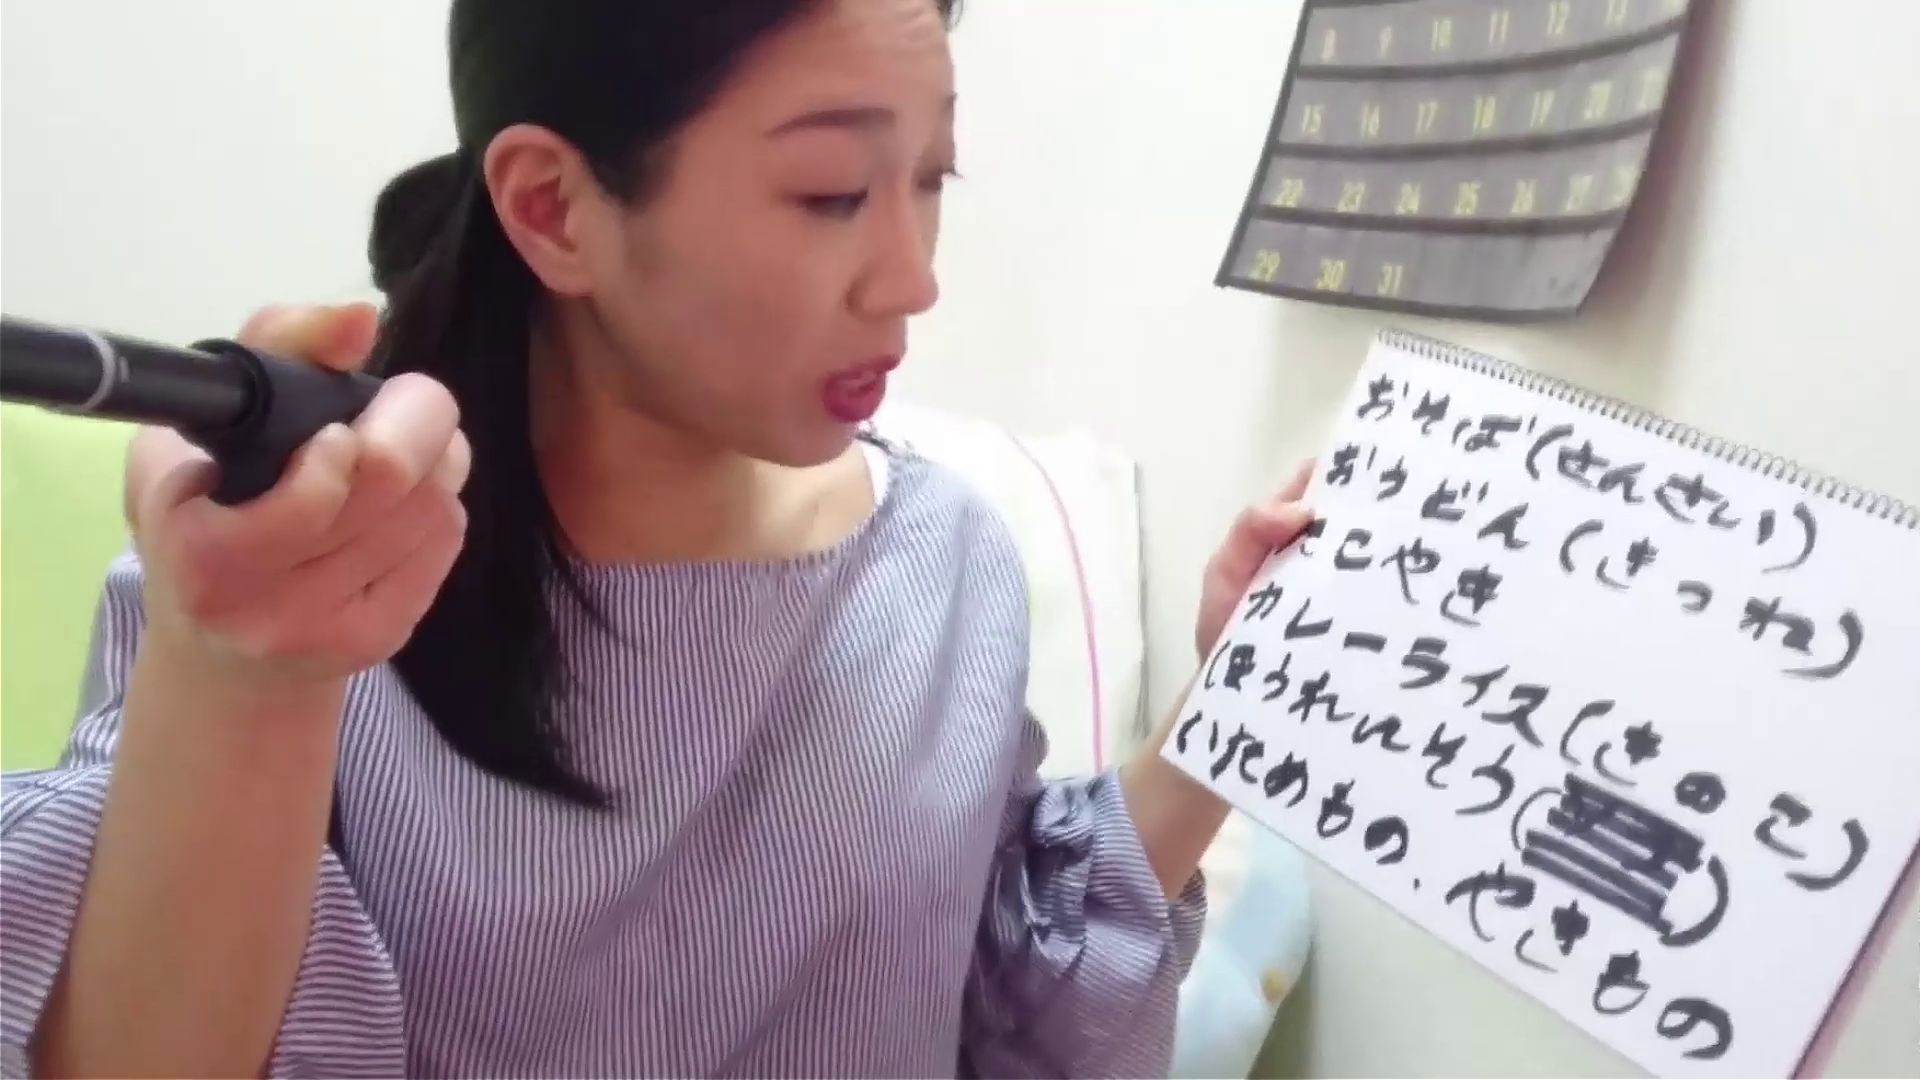 8 9 10 11 12 13
15 16 17 18 19 20 21
22 23 24 25 26 27 28
29 30 31
おそば(さんさい)
おうどん(きつね)
たこやき
カレーライス(きのこ)
(ほうれんそう(
いためもの、やきもの